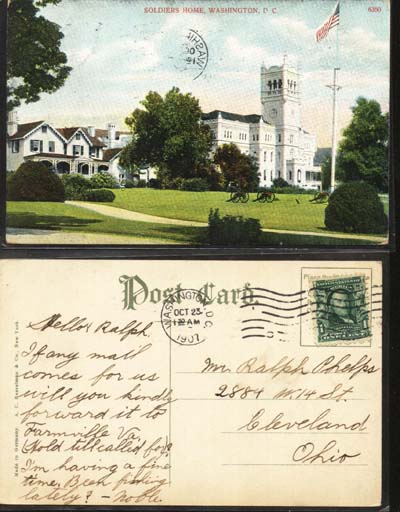 SOLDIERS HOME, WASHINGTON, D C.
6350
Post Card.
WASHINGTON, D.C.
OCT 23
12 AM
1907
Hello Ralph.
If any mail
comes for us
will you kindly
forward it to
Farmville Va.
Hold till called for?
I'm having a fine
time, Been fishing
lately? - Noble
Mr. Ralph Phelps
2884 W. 14 St.
Cleveland
Ohio